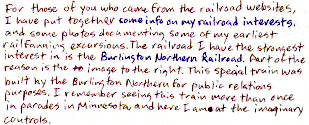 For those of you who came from the railroad websites,
I have put together some info on my railroad interests,
and some photos documenting some of my earliest
railfanning excursions. The railroad I have the strongest
interest in is the Burlington Northern Railroad. Part of the
reason is the image to the right. This special train was
built by the Burlington Northern for public relations
purposes. I remember seeing this train more than once
in parades in Minnesota, and here I am at the imaginary
controls.